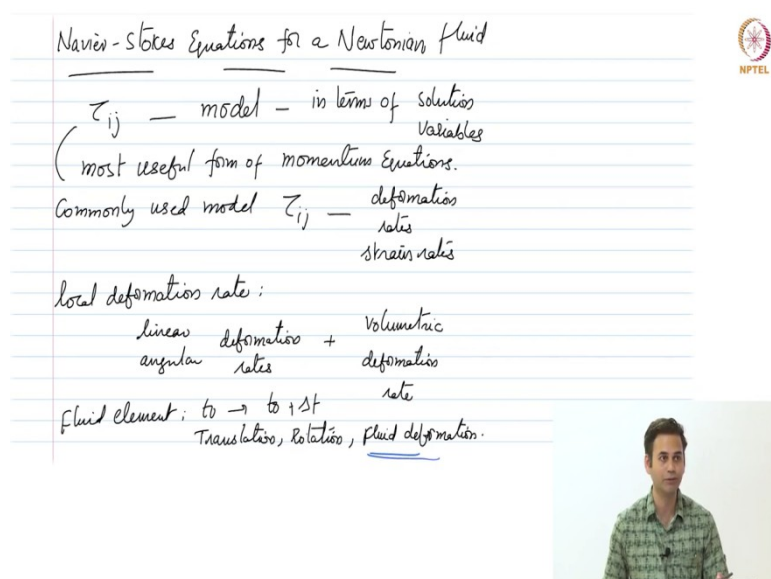 Navier-Stokes Equations for a Newtonian fluid
NPTEL
τij — model — in terms of solution variables
most useful form of momentum Equations.
Commonly used model τij — deformation rates
strain rates
local deformation rate:
linear angular deformation rates + volumetric deformation rate
Fluid element: t0 → t0 + Δt
Translation, Rotation, fluid deformation.